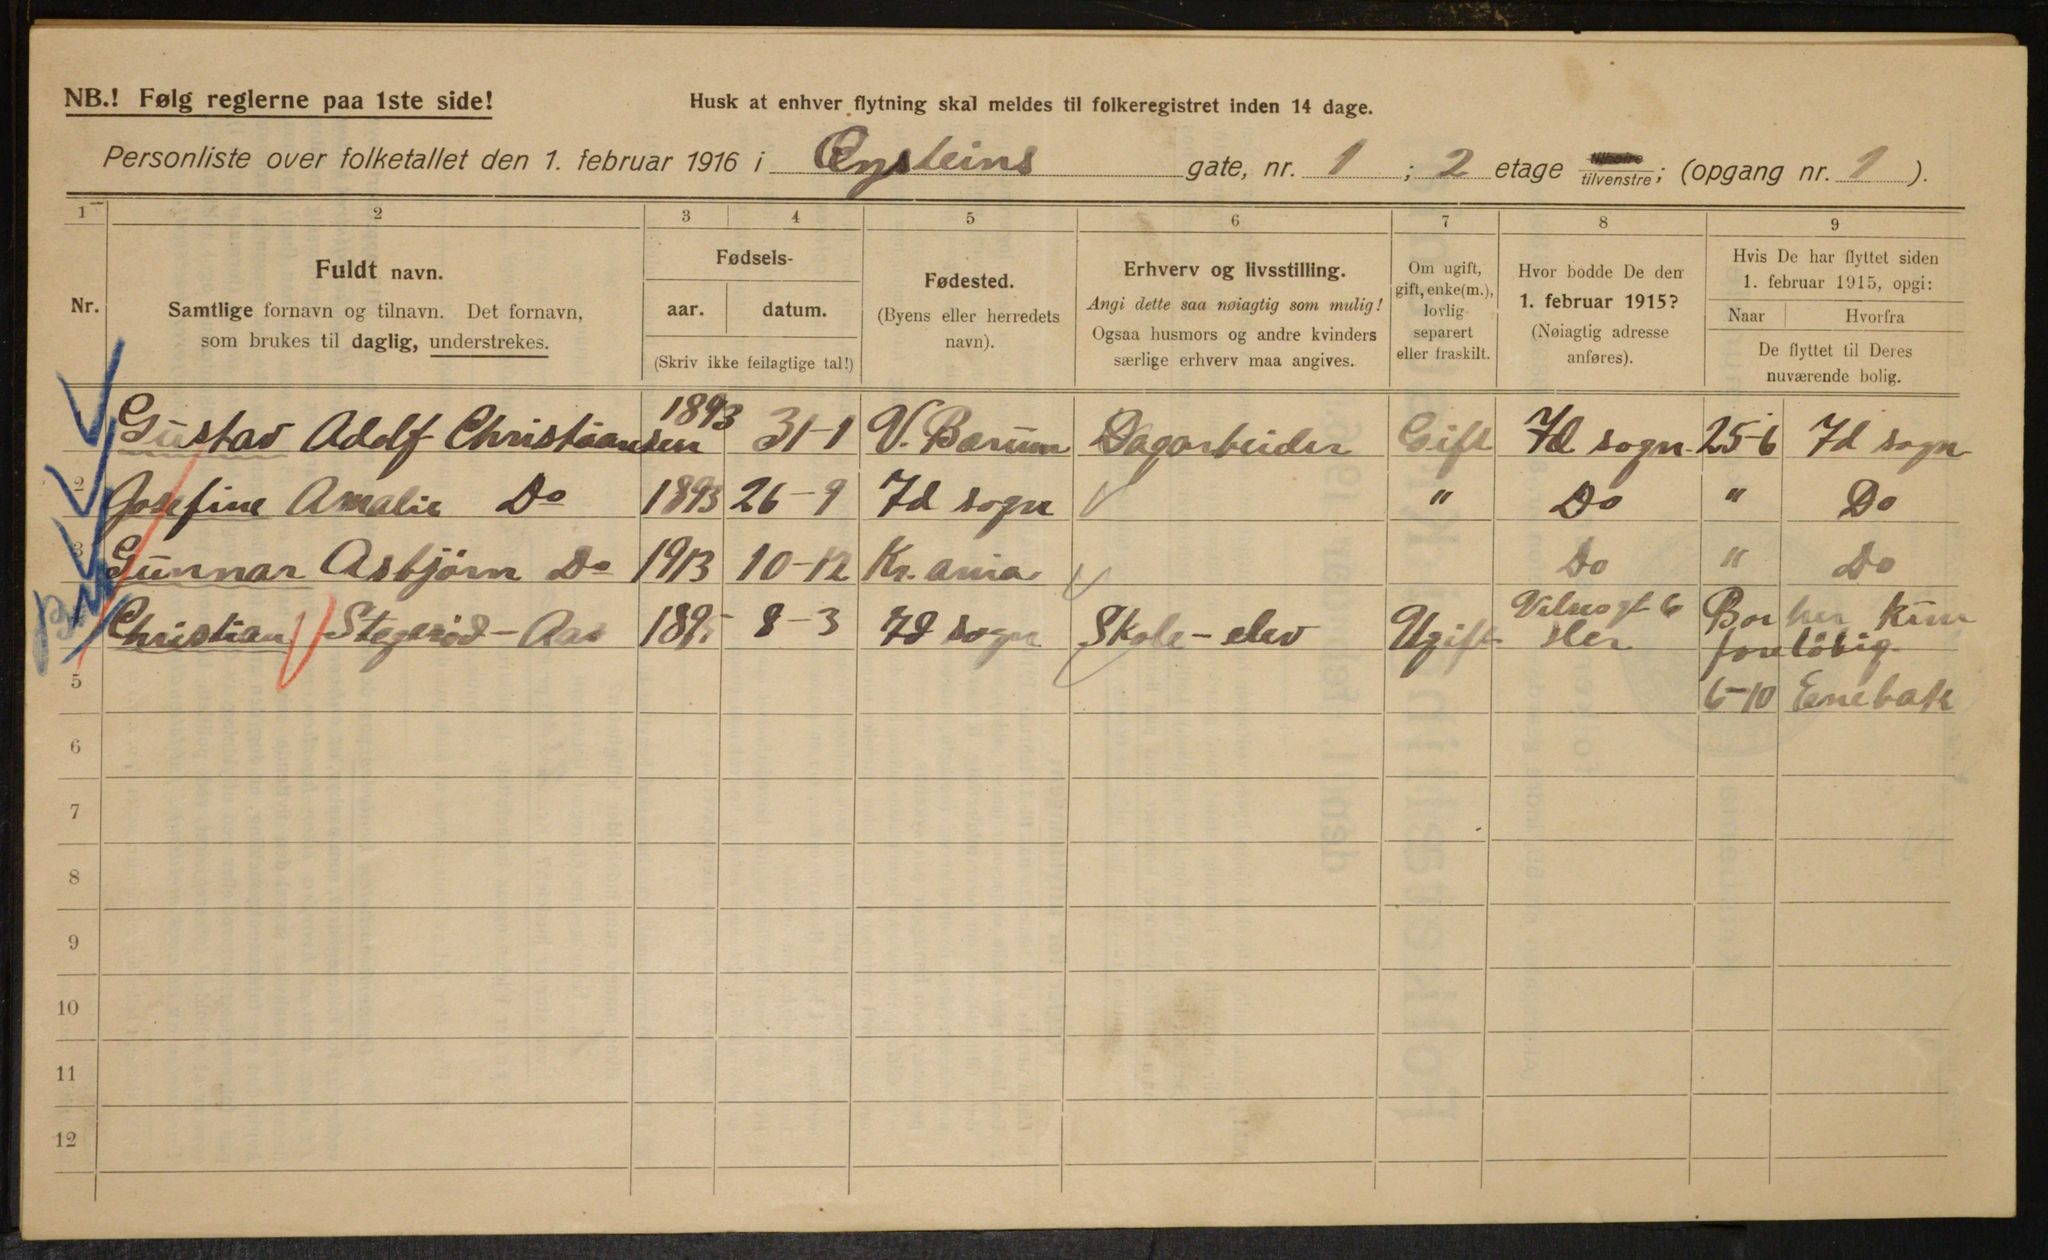 NB.! Følg reglerne paa 1ste side!
Husk at enhver flytning skal meldes til folkeregistret inden 14 dage.
Personliste over folketallet den 1. februar 1916 i Øysteins gate, nr. 1 ; 2 etage tilhøire tilvenstre; (opgang nr. 1 ).
1 2 3 4 5 6 7 8 9
Nr.
Fuldt navn.
Samtlige fornavn og tilnavn. Det fornavn,
som brukes til daglig, understrekes.
Fødsels-
aar. datum.
(Skriv ikke feilagtige tal!)
Fødested.
(Byens eller herredets
navn).
Erhverv og livsstilling.
Angi dette saa nøiagtig som mulig!
Ogsaa husmors og andre kvinders
særlige erhverv maa angives.
Om ugift,
gift, enke(m.),
lovlig
separert
eller fraskilt.
Hvor bodde De den
1. februar 1915?
(Nøiagtig adresse
anføres).
Hvis De har flyttet siden
1. februar 1915, opgi:
Naar Hvorfra
De flyttet til Deres
nuværende bolig.
Gustav Adolf Christiansen 1893 31-1 V. Bærum Dagarbeider Gift 7d sogn 25-6 7d sogn
2 Josefine Amalie Do 1893 26-9 7d sogn " Do " Do
3 Gunnar Asbjørn Do 1913 10-12 Kr.ania Do " Do
Christian Stegerød-Aas 189 8-3 7d sogn Skole-elev Ugift 6 Bor her kun
foreløbig
5 6-10 Enebak
6
7
8
9
10
11
12